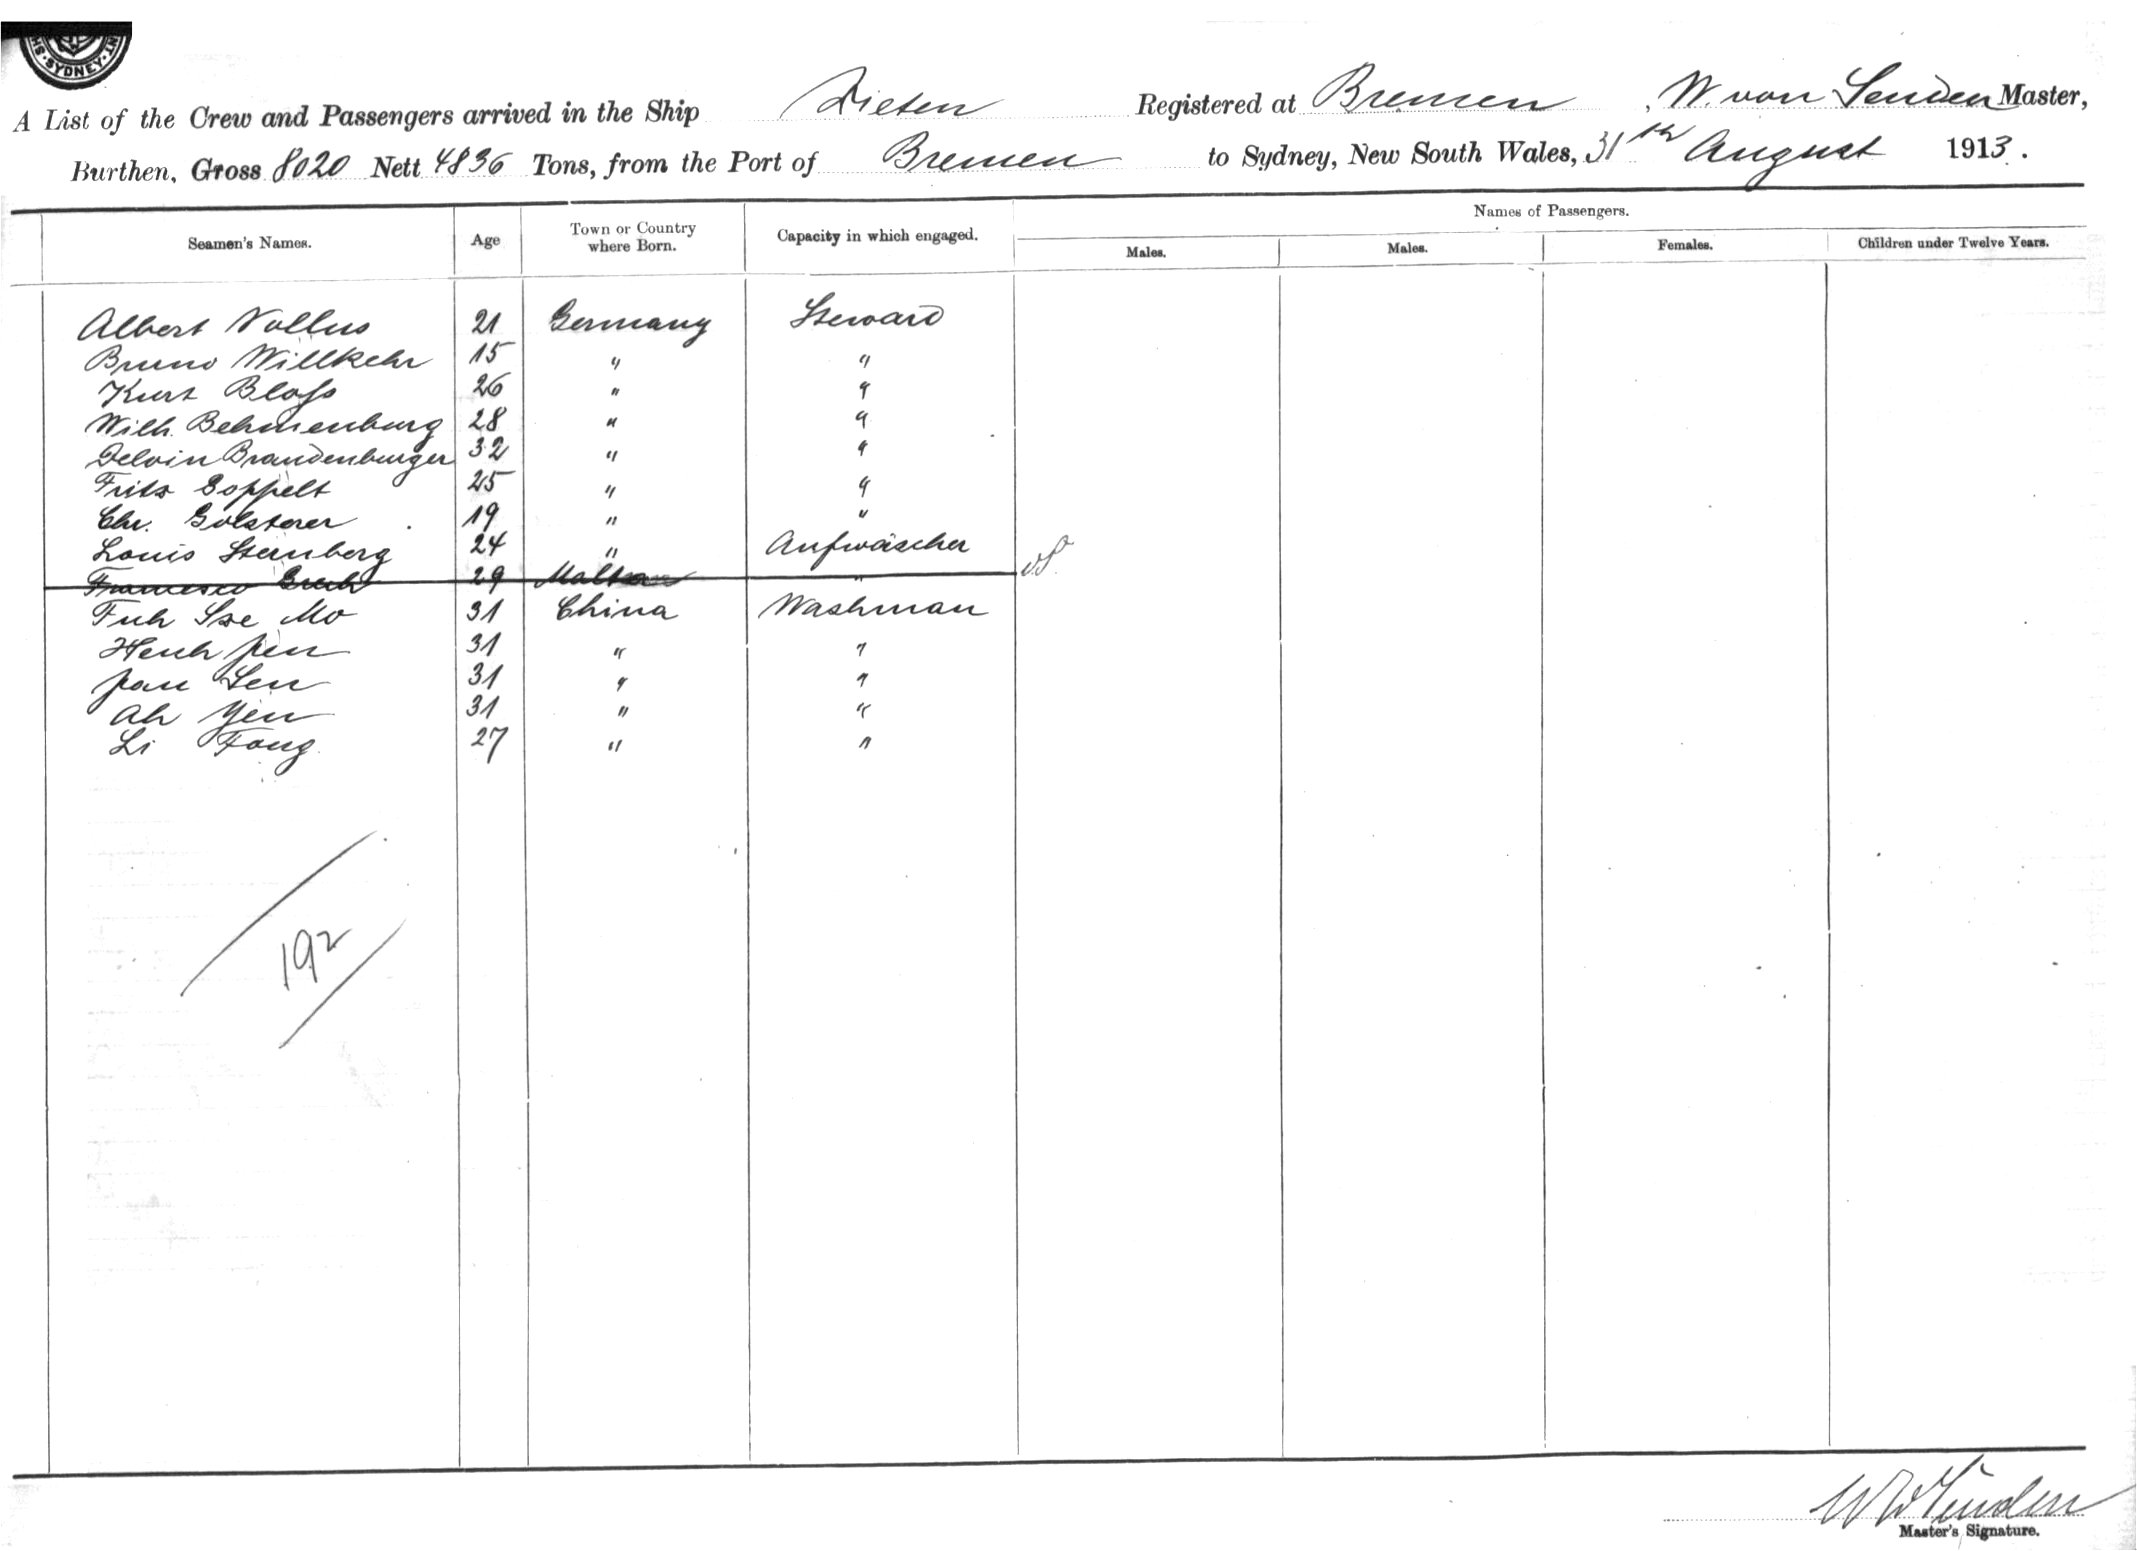 SYDNEY
A List of the Crew and Passengers arrived in the Ship Zieten Registered at Bremen, W. von Senden Master,
Burthen, Gross 8020 Nett 4836 Tons, from the Port of Bremen to Sydney, New South Wales, 31th August 1913.
Seamen's Names. Age Town or Country where Born. Capacity in which engaged. Names of Passengers.
Males. Males. Females. Children under Twelve Years.
Albert Vollus 21 Germany Steward
Bruno Willkehr 15 " "
Kurt Bloß 26 " "
Wilh. Behmenburg 28 " "
Brandenburger 32 " "
Fritz Goppelt 25 " "
Chr. Golsterer 19 " "
Louis Sternberg 24 " Aufwäscher
Francesco Grech 29 Malta "
Fuh Sze Mo 31 China Washman
31 " "
31 " "
Ah Yen 31 " "
Li Fong 27 " "
192
Master's Signature.